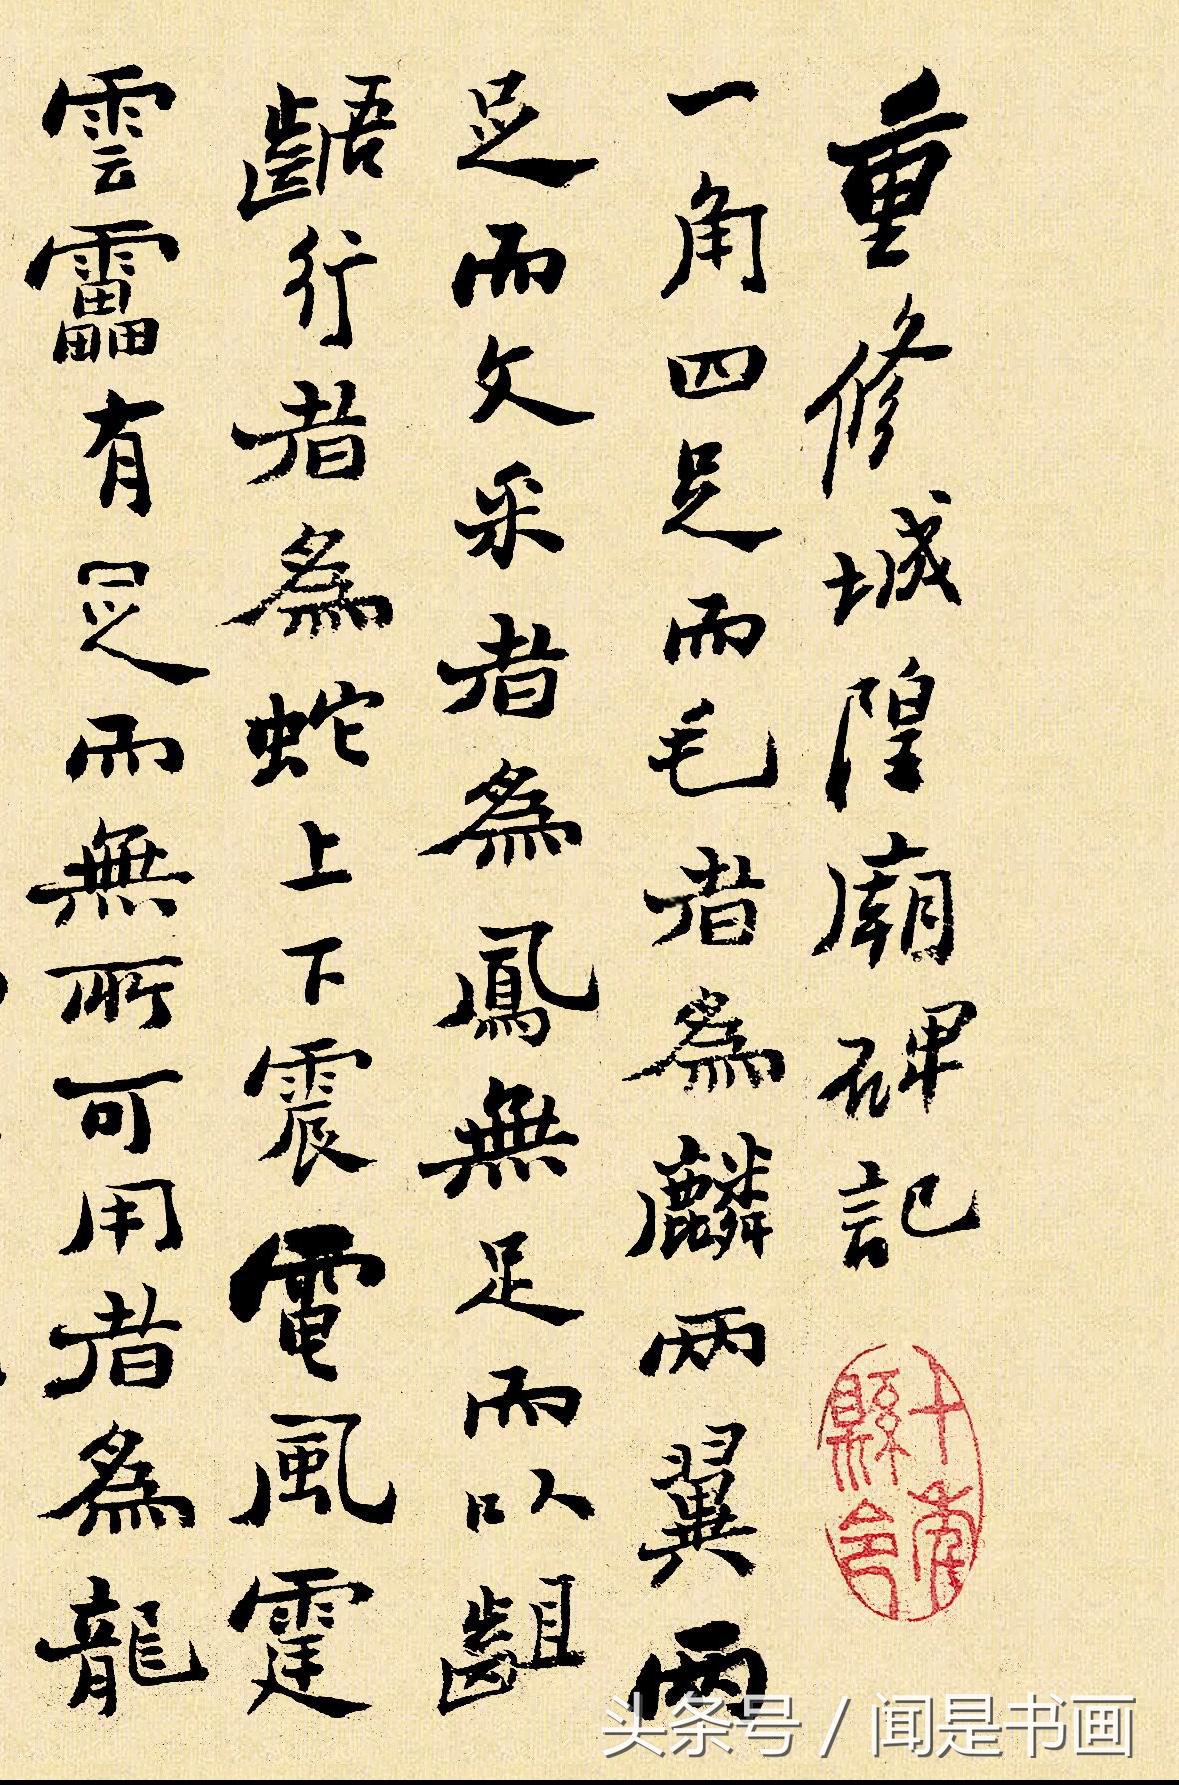 重修城隍廟碑記
一角四足而毛者為麟兩翼兩
足而文采者為鳳無足而以齟
齬行者為蛇上下震電風霆
雲靁有足而無所可用者為龍
十年縣令
头条号 / 闻是书画